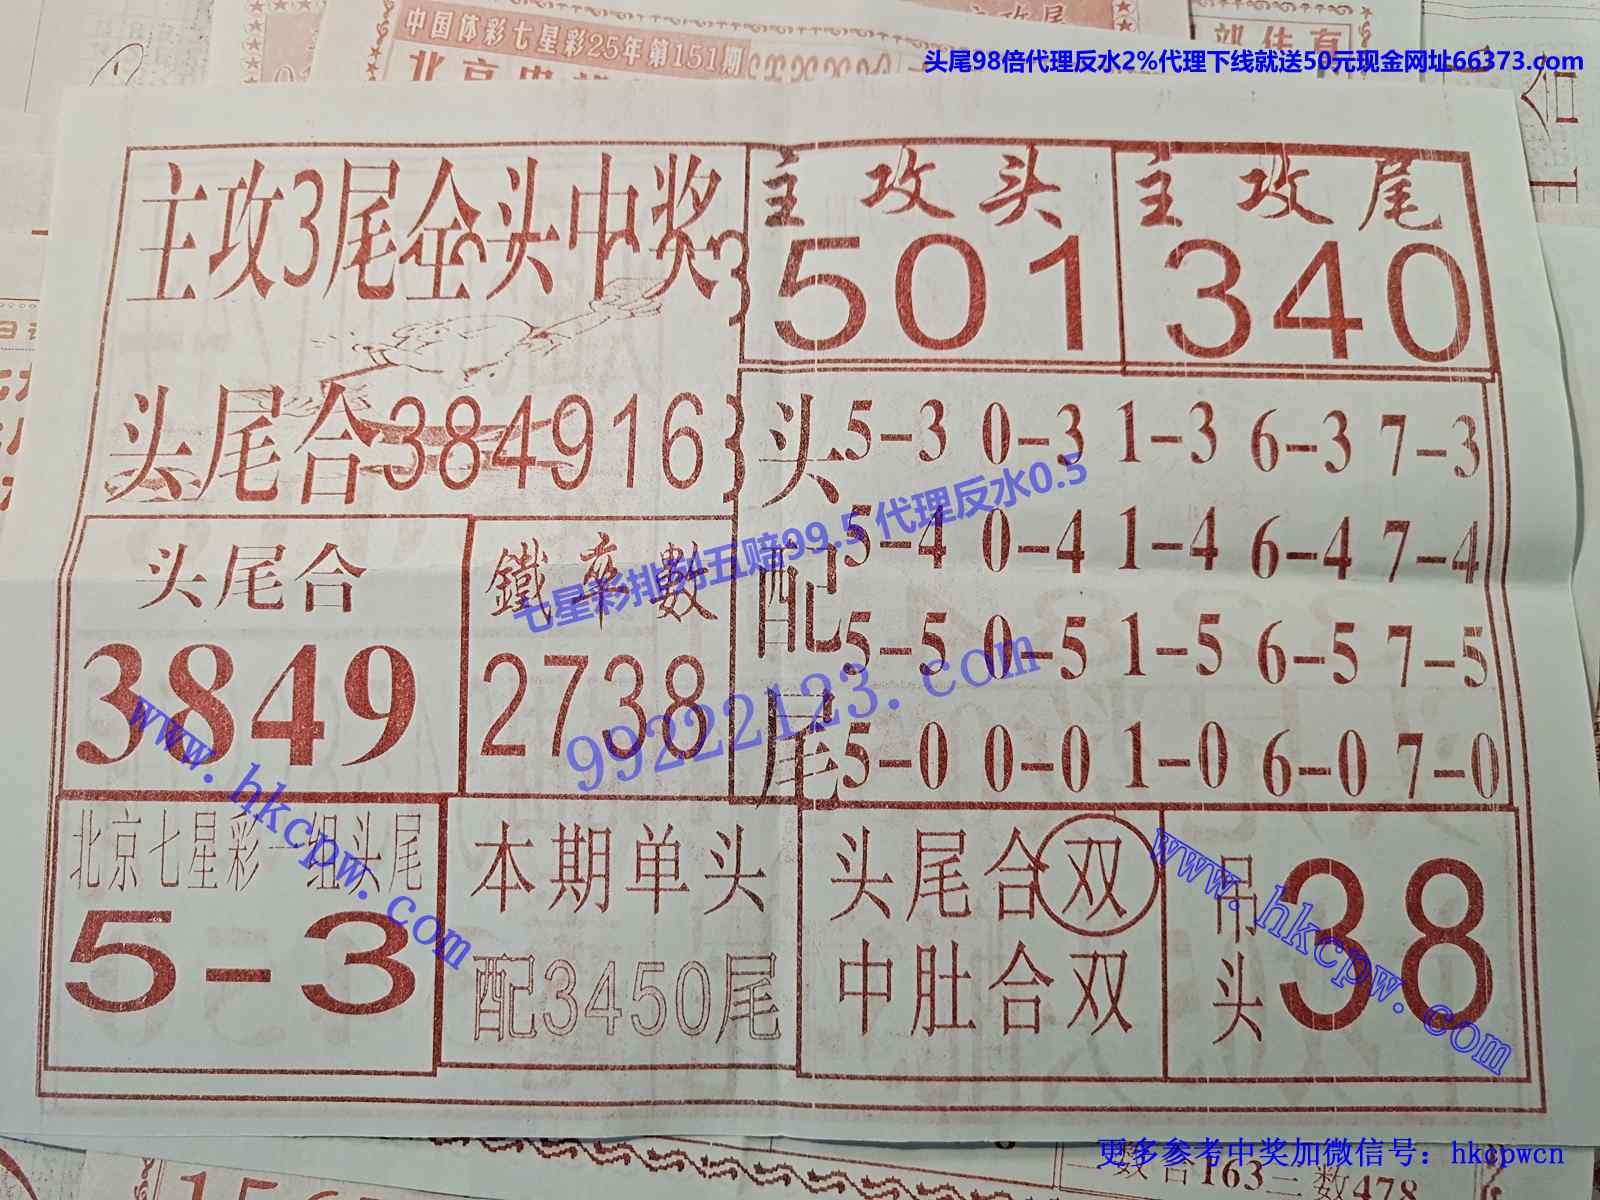 主攻尾
中国体彩七星彩25年第151期
头尾98倍代理反水2%代理下线就送50元现金网址66373.com
合
主攻3尾全头中奖
主攻头
501
主攻尾
340
头尾合384916
头配尾
5-3 0-3 1-3 6-3 7-3
5-4 0-4 1-4 6-4 7-4
5-5 0-5 1-5 6-5 7-5
5-0 0-0 1-0 6-0 7-0
七星彩排列五赔99.5 代理反水0.5
99222123.com
头尾合
3849
鐵率數
2738
www.hkcpw.com
北京七星彩一组头尾
5-3
本期单头
配3450尾
头尾合双
中肚合双
吊头
38
www.hkcpw.com
更多参考中奖加微信号：hkcpwcn
数合163二数478